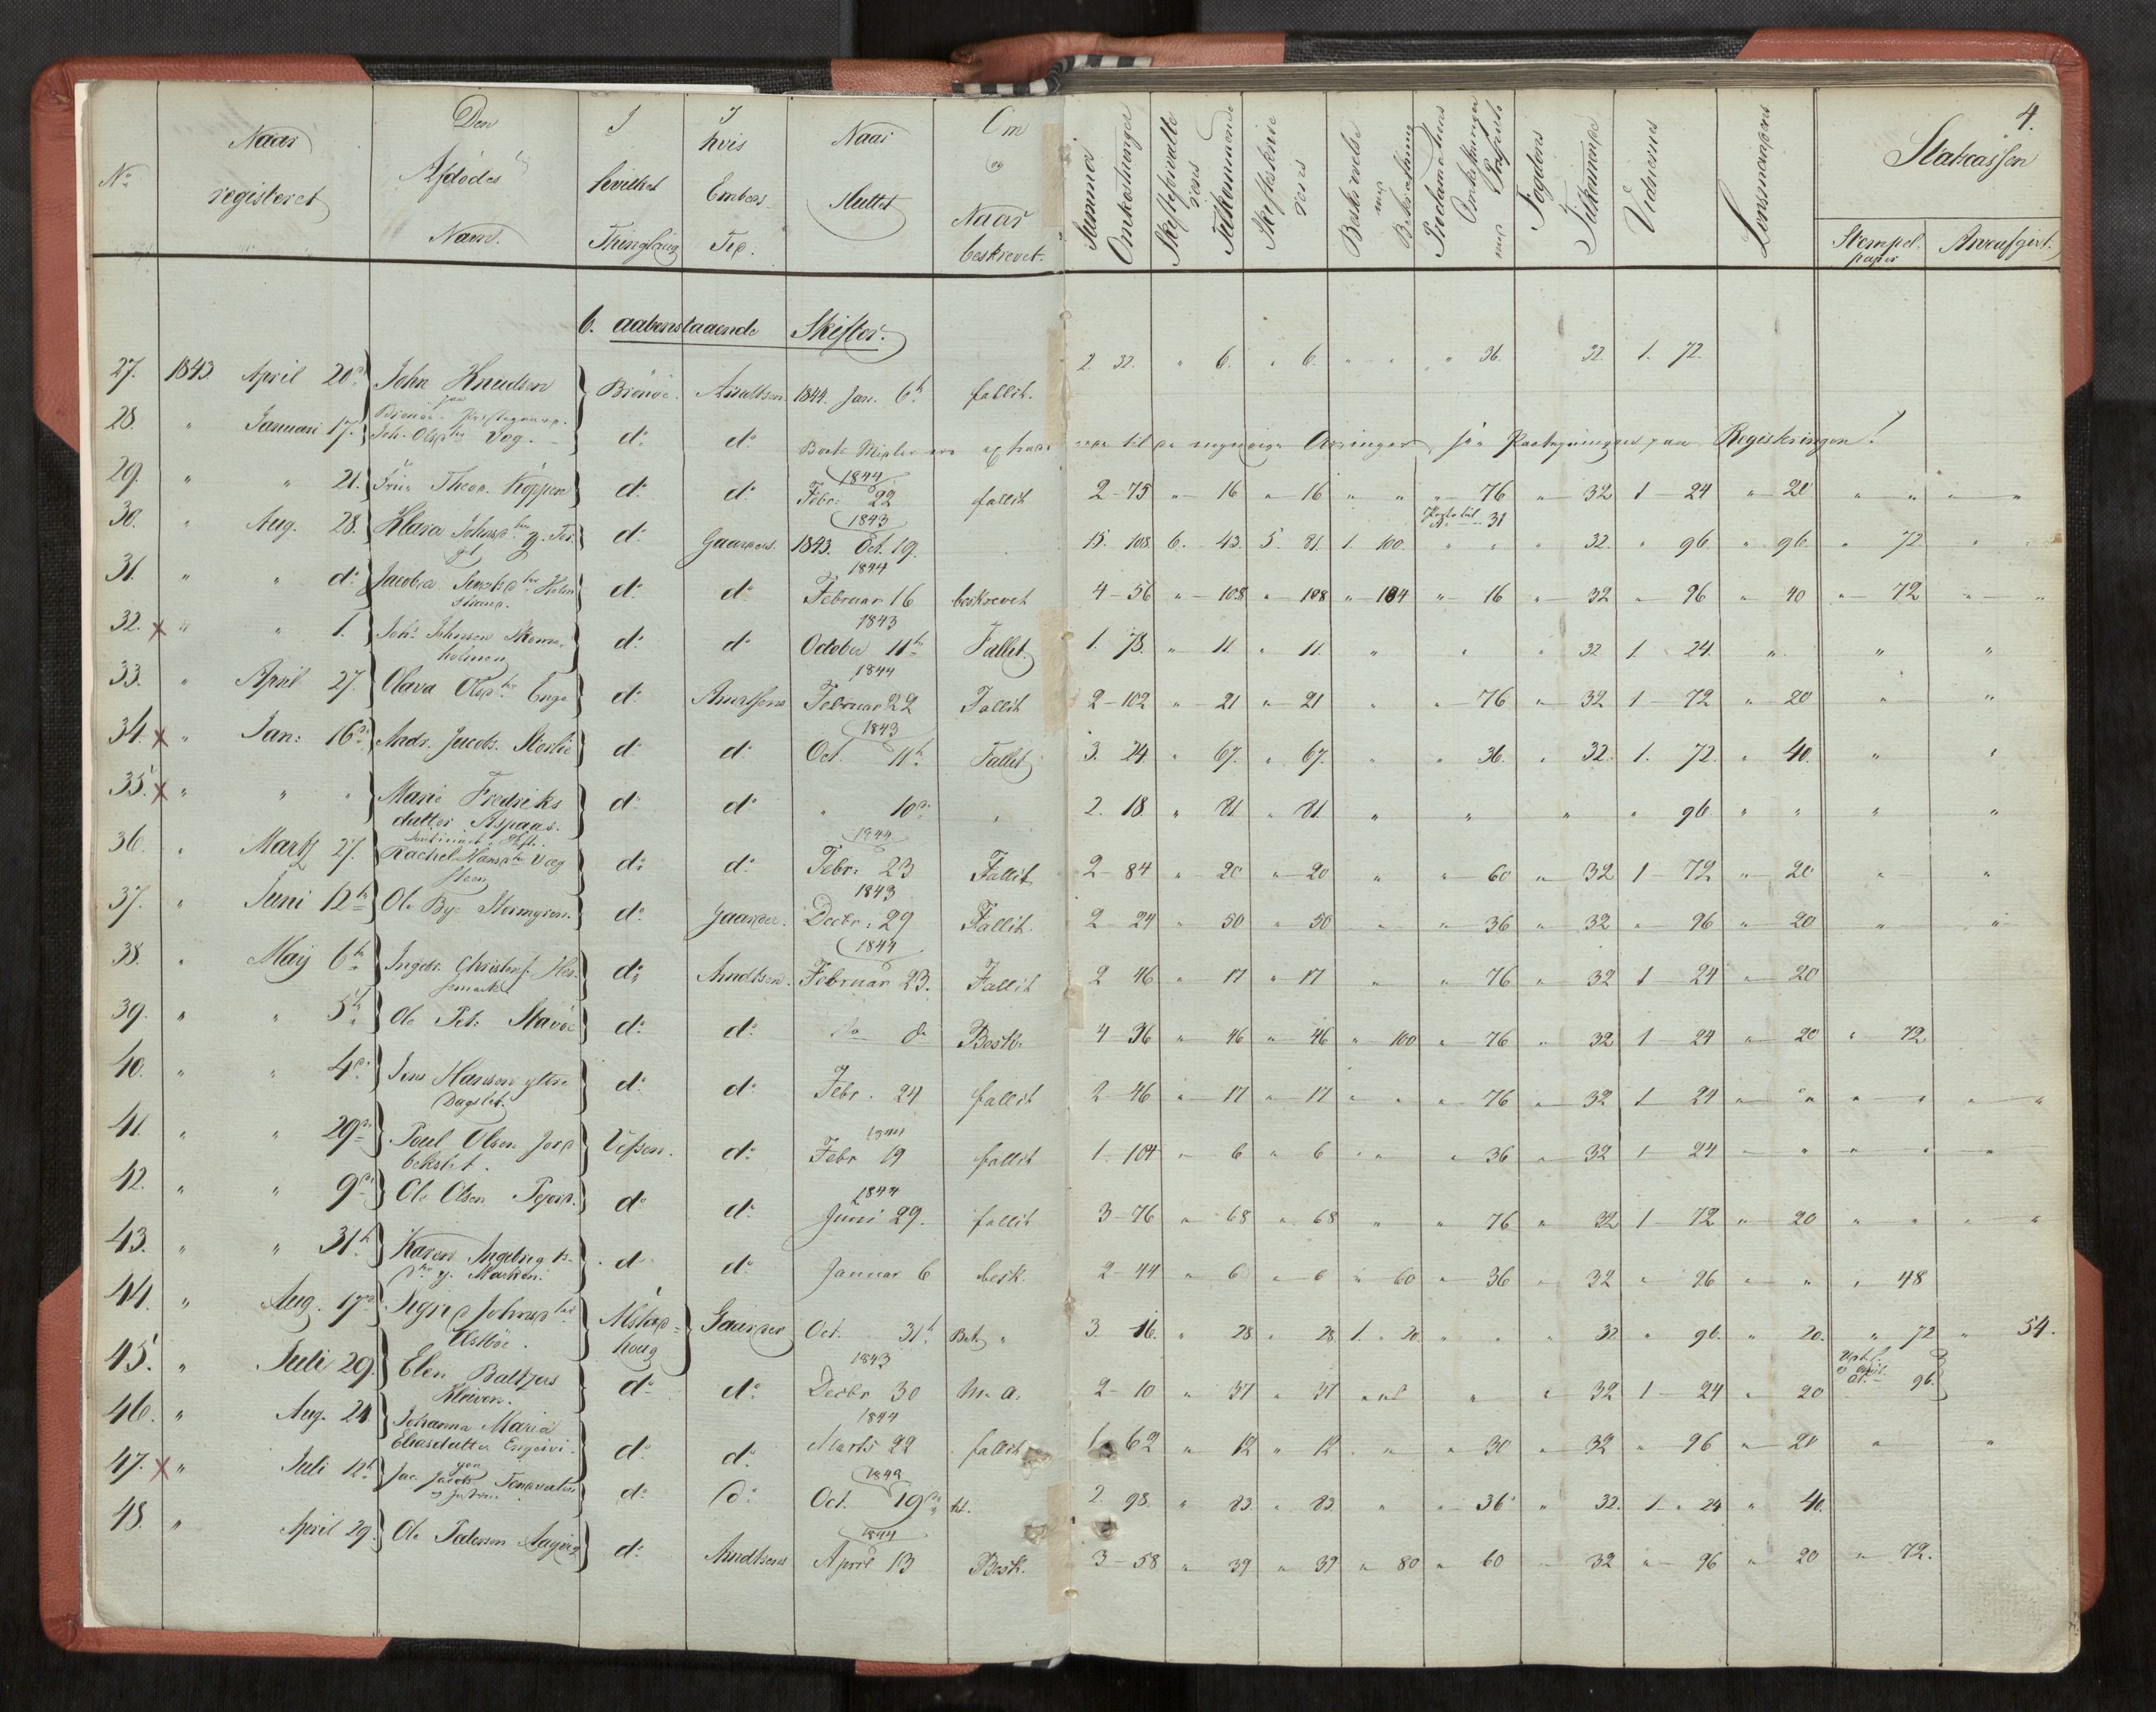 4.
No Naar registeret Den Afdødes Navn. I hvilket Thinglaug I hvis Embeds Tid. Naar sluttet Om og Naar beskrevet. Summa Omkostninger Skifteforvalterens Tilkommende Skifteskriverens Beskrivelse med Bekræftning Proclamatens Omkostninger med Fogdens Tilkommende Vidnernes Lensmandens Statcassen
Stempel papir Arveafgivt.
b. aabenstaaende Skifter.
27. 1843. April 20de John Knudsen Brønøe. Arndtsen 1844. Jan. 6te fallit. 2 32. " 6. " 6. " " " 36. 32. 1. 72.
28. " Januari 17. Joh. Olsdtr Vog. do do Boets Midler til de myndige Arvinger Paategningen paa Registeringen!
29. " " 21. Theod. Köppen do do 1844 Febr: 22 fallit 2-75 " 16 " 16 " " " 76 " 32 1-24 " 20 " " " "
30. " Aug. 28. Klara Johnsdtr do Gaarders. 1843 1843. Oct. 19. 15. 108. 6. 43. 5. 81. 1. 100. 31 " " " 32. " 96. " 96. " 72. "
31. " " do Jacobia do do 1844 Februar 16 beskrevet 4-56 " 108 " 108 " 104 " 16 " 32 " 96 " 40 " 72 " "
32. x " " 1. Joh: Johnsen holmen do do 1843 October 11te Fallit. 1. 78. " 11. " 11. " " " 32 1. 24. " " "
33. " April 27. Olava Olsdtr Enge do Arndtsens 1844 Februar 22 Fallit 2-102 " 21 " 21 " " 76 " 32 1-72 " 20 " "
34. x " Jan: 16de Andr. Jacobs. Storlie do do 1843 Oct. 11te Fallit 3. 24. " 67. " 67. " " 36. " 32. 1. 72. " 40. " "
35. x " " " Marie Fredriks datter Aspaas. do do " 10de " 2. 18. " 81 " 81. " " " " 96. " " " "
36. " Marts 27. Rachel Hansdtr Vog steen do do 1844 Febr: 23 Fallit 2-84 " 20 " 20 " " 60 " 32 1-72 " 20 " "
37. " Juni 12te Ole Bye Stormyren. do Gaarder. 1843 Decbr: 29 Fallit. 2-24 " 50 " 50 " " 36 " 32 " 96 " 20 " "
38. " Maij 6te Ingebr. Christenf. do Arndtsen. 1844 Februar 23. Fallit 2 46 " 17 " 17 " " 76 " 32 1 24 " 20
39. " " 5te Ole Pet: do do do Besk: 4-36 " 46 " 46 " 100 " 76 " 32 1-24 " 20 " 72
40. " " 4de Jens Hansen ytre Dagslet. do do Febr. 24 fallit 2-46 " 17 " 17 " " " 76 " 32 1 24 " " " " " "
41. " " 29de Poul Olsen Jord bekslet. Vefsen. do 1844 Febr 19 fallit 1-104 " 6 " 6 " " " 36 " 32 1-24 " " " " "
42. " " 9de Ole Olsen do do 1844 Juni 29. fallit 3-76 " 68 " 68 " " 76 " 32 1-72 " 20 " " " "
43. " " 31te Karen Ingebrigts dtr y. do do Januar 6 besk. 2-44 " 6 " 6 " 60 " 36 " 32 " 96 " " " 48
44. " Aug. 17de Sigrid Johnsdtr Alstadhoug Gaarder Oct. 31te 3. 16. " 28 " 28 1. " 20 " " " 32 " 96. " 20. " 72 " 54.
45. " Juli 29. Elen Baltzers Kleiven. do do 1843 Decbr 30 2-10 " 37 " 37 " " " 32 1-24 " 20 96.
46. " Aug. 24 Johanna Maria Eliasdatter do do 1844 Marts 22 fallit 1-62 " 12 " 12 " " 30 " 32 " 96 " 20 " "
47. x " Juli 12te Jac. Jacobs. do do 1843 Oct. 19de 2. 98. " 83. " 83 " " 36 " 32. 1. 24 " 40.
48. " April 29. Ole Pedersen do Arndtsens 1844 April 13 Besk. 3-58 " 39 " 39 " 80 " 60 " 32 " 96 " 20 " 72.